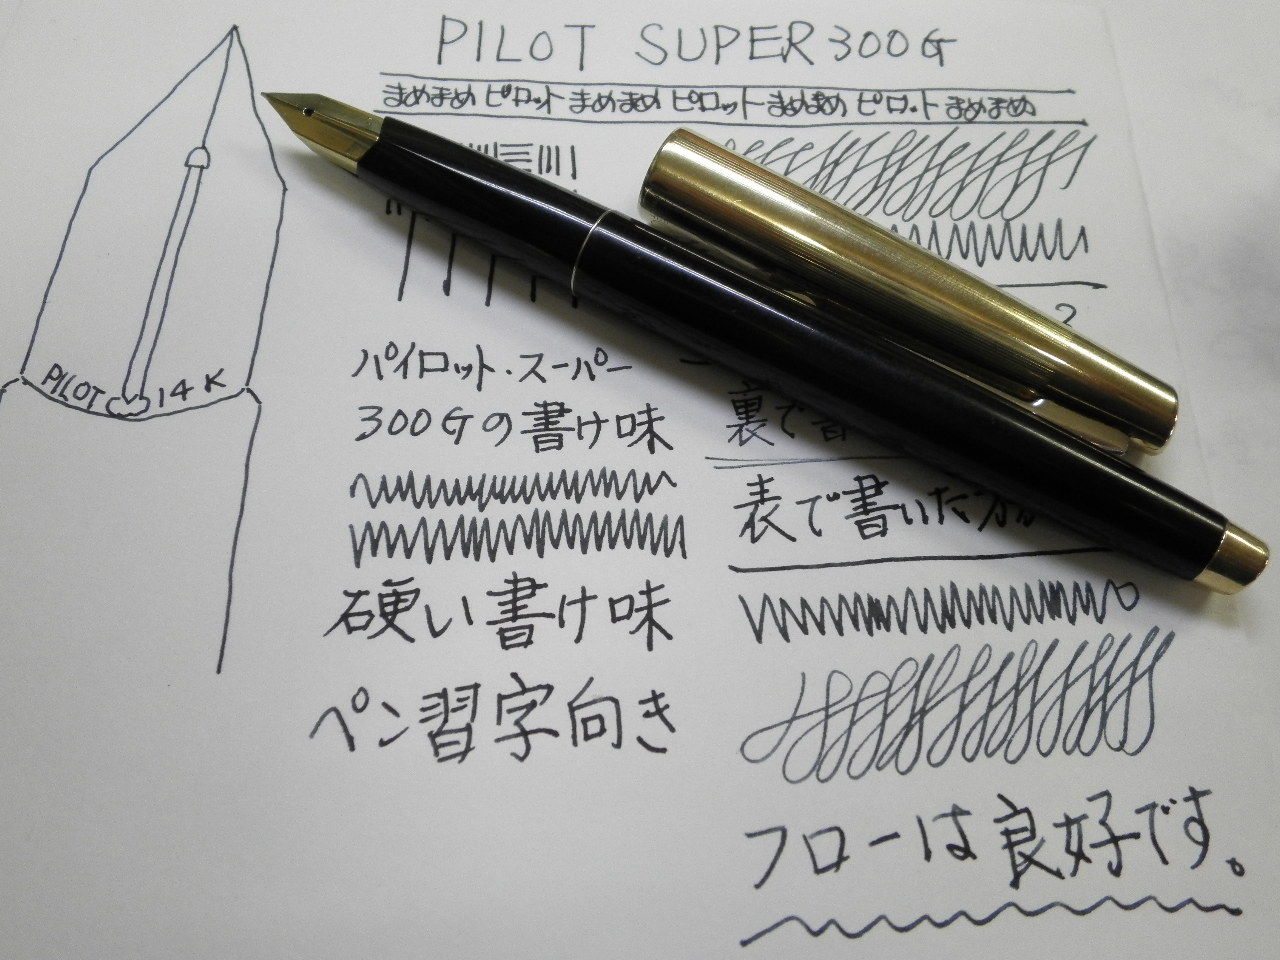 PILOT SUPER 300G
まめまめ ピロット まめまめ ピロット まめまめ ピロット まめまめ
PILOT 14K
パイロット・スーパー
300Gの書け味
硬い書け味
ペン習字向き
?
裏で書
表で書いた方が
フローは良好です。